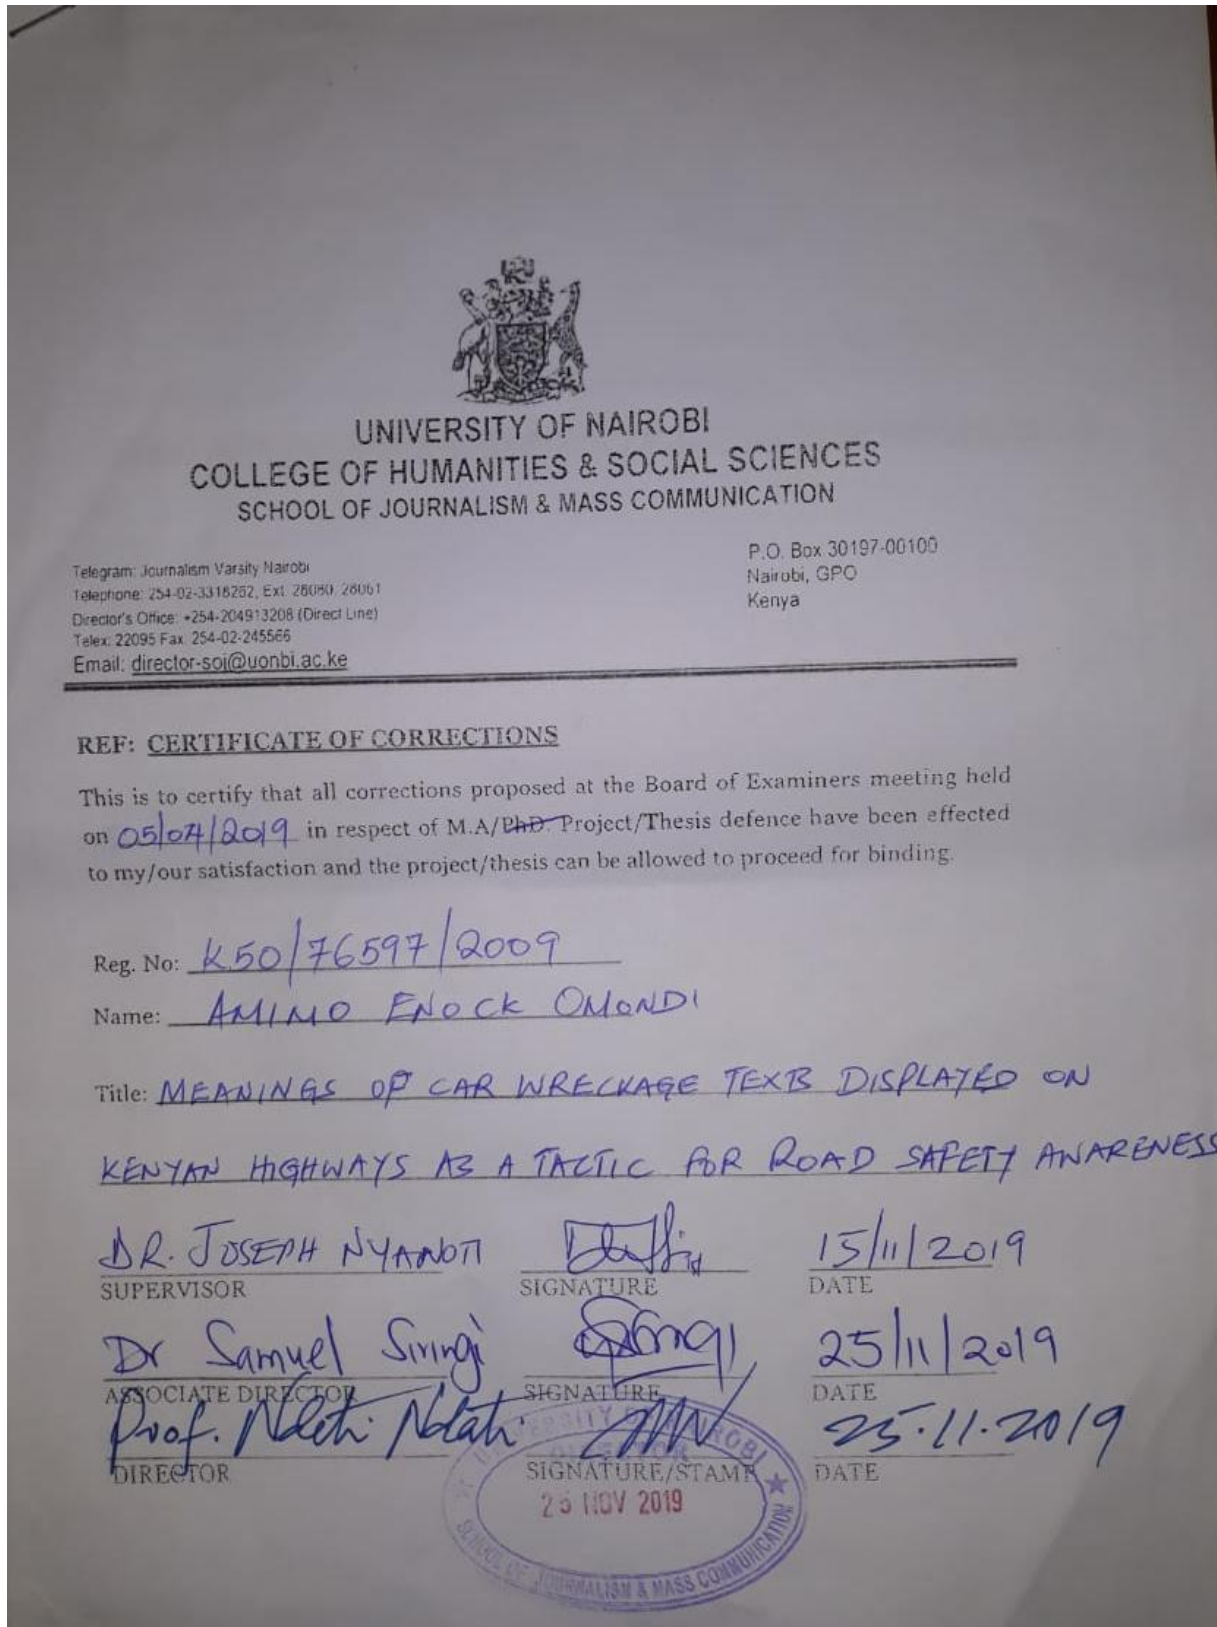 UNIVERSITY OF NAIROBI
COLLEGE OF HUMANITIES & SOCIAL SCIENCES
SCHOOL OF JOURNALISM & MASS COMMUNICATION
Telegram: Journalism Varsity Nairobi
Telephone: 254-02-3318262, Ext. 28080, 28061
Director's Office: +254-204913208 (Direct Line)
Telex: 22095 Fax: 254-02-245566
Email: director-soj@uonbi.ac.ke
P.O. Box 30197-00100
Nairobi, GPO
Kenya
REF: CERTIFICATE OF CORRECTIONS
This is to certify that all corrections proposed at the Board of Examiners meeting held
on 05/07/2019 in respect of M.A/PhD. Project/Thesis defence have been effected
to my/our satisfaction and the project/thesis can be allowed to proceed for binding.
Reg. No: K50/76597/2009
Name: AMIMO ENOCK OMONDI
Title: MEANINGS OF CAR WRECKAGE TEXTS DISPLAYED ON
KENYAN HIGHWAYS AS A TACTIC FOR ROAD SAFETY AWARENESS
DR. JOSEPH NYANOTI 15/11/2019
SUPERVISOR SIGNATURE DATE
Dr Samuel Siringi 25/11/2019
ASSOCIATE DIRECTOR SIGNATURE DATE
Prof. Ndeti Ndati 25.11.2019
DIRECTOR SIGNATURE/STAMP DATE
UNIVERSITY OF NAIROBI
DIRECTOR
25 NOV 2019
SCHOOL OF JOURNALISM & MASS COMMUNICATION